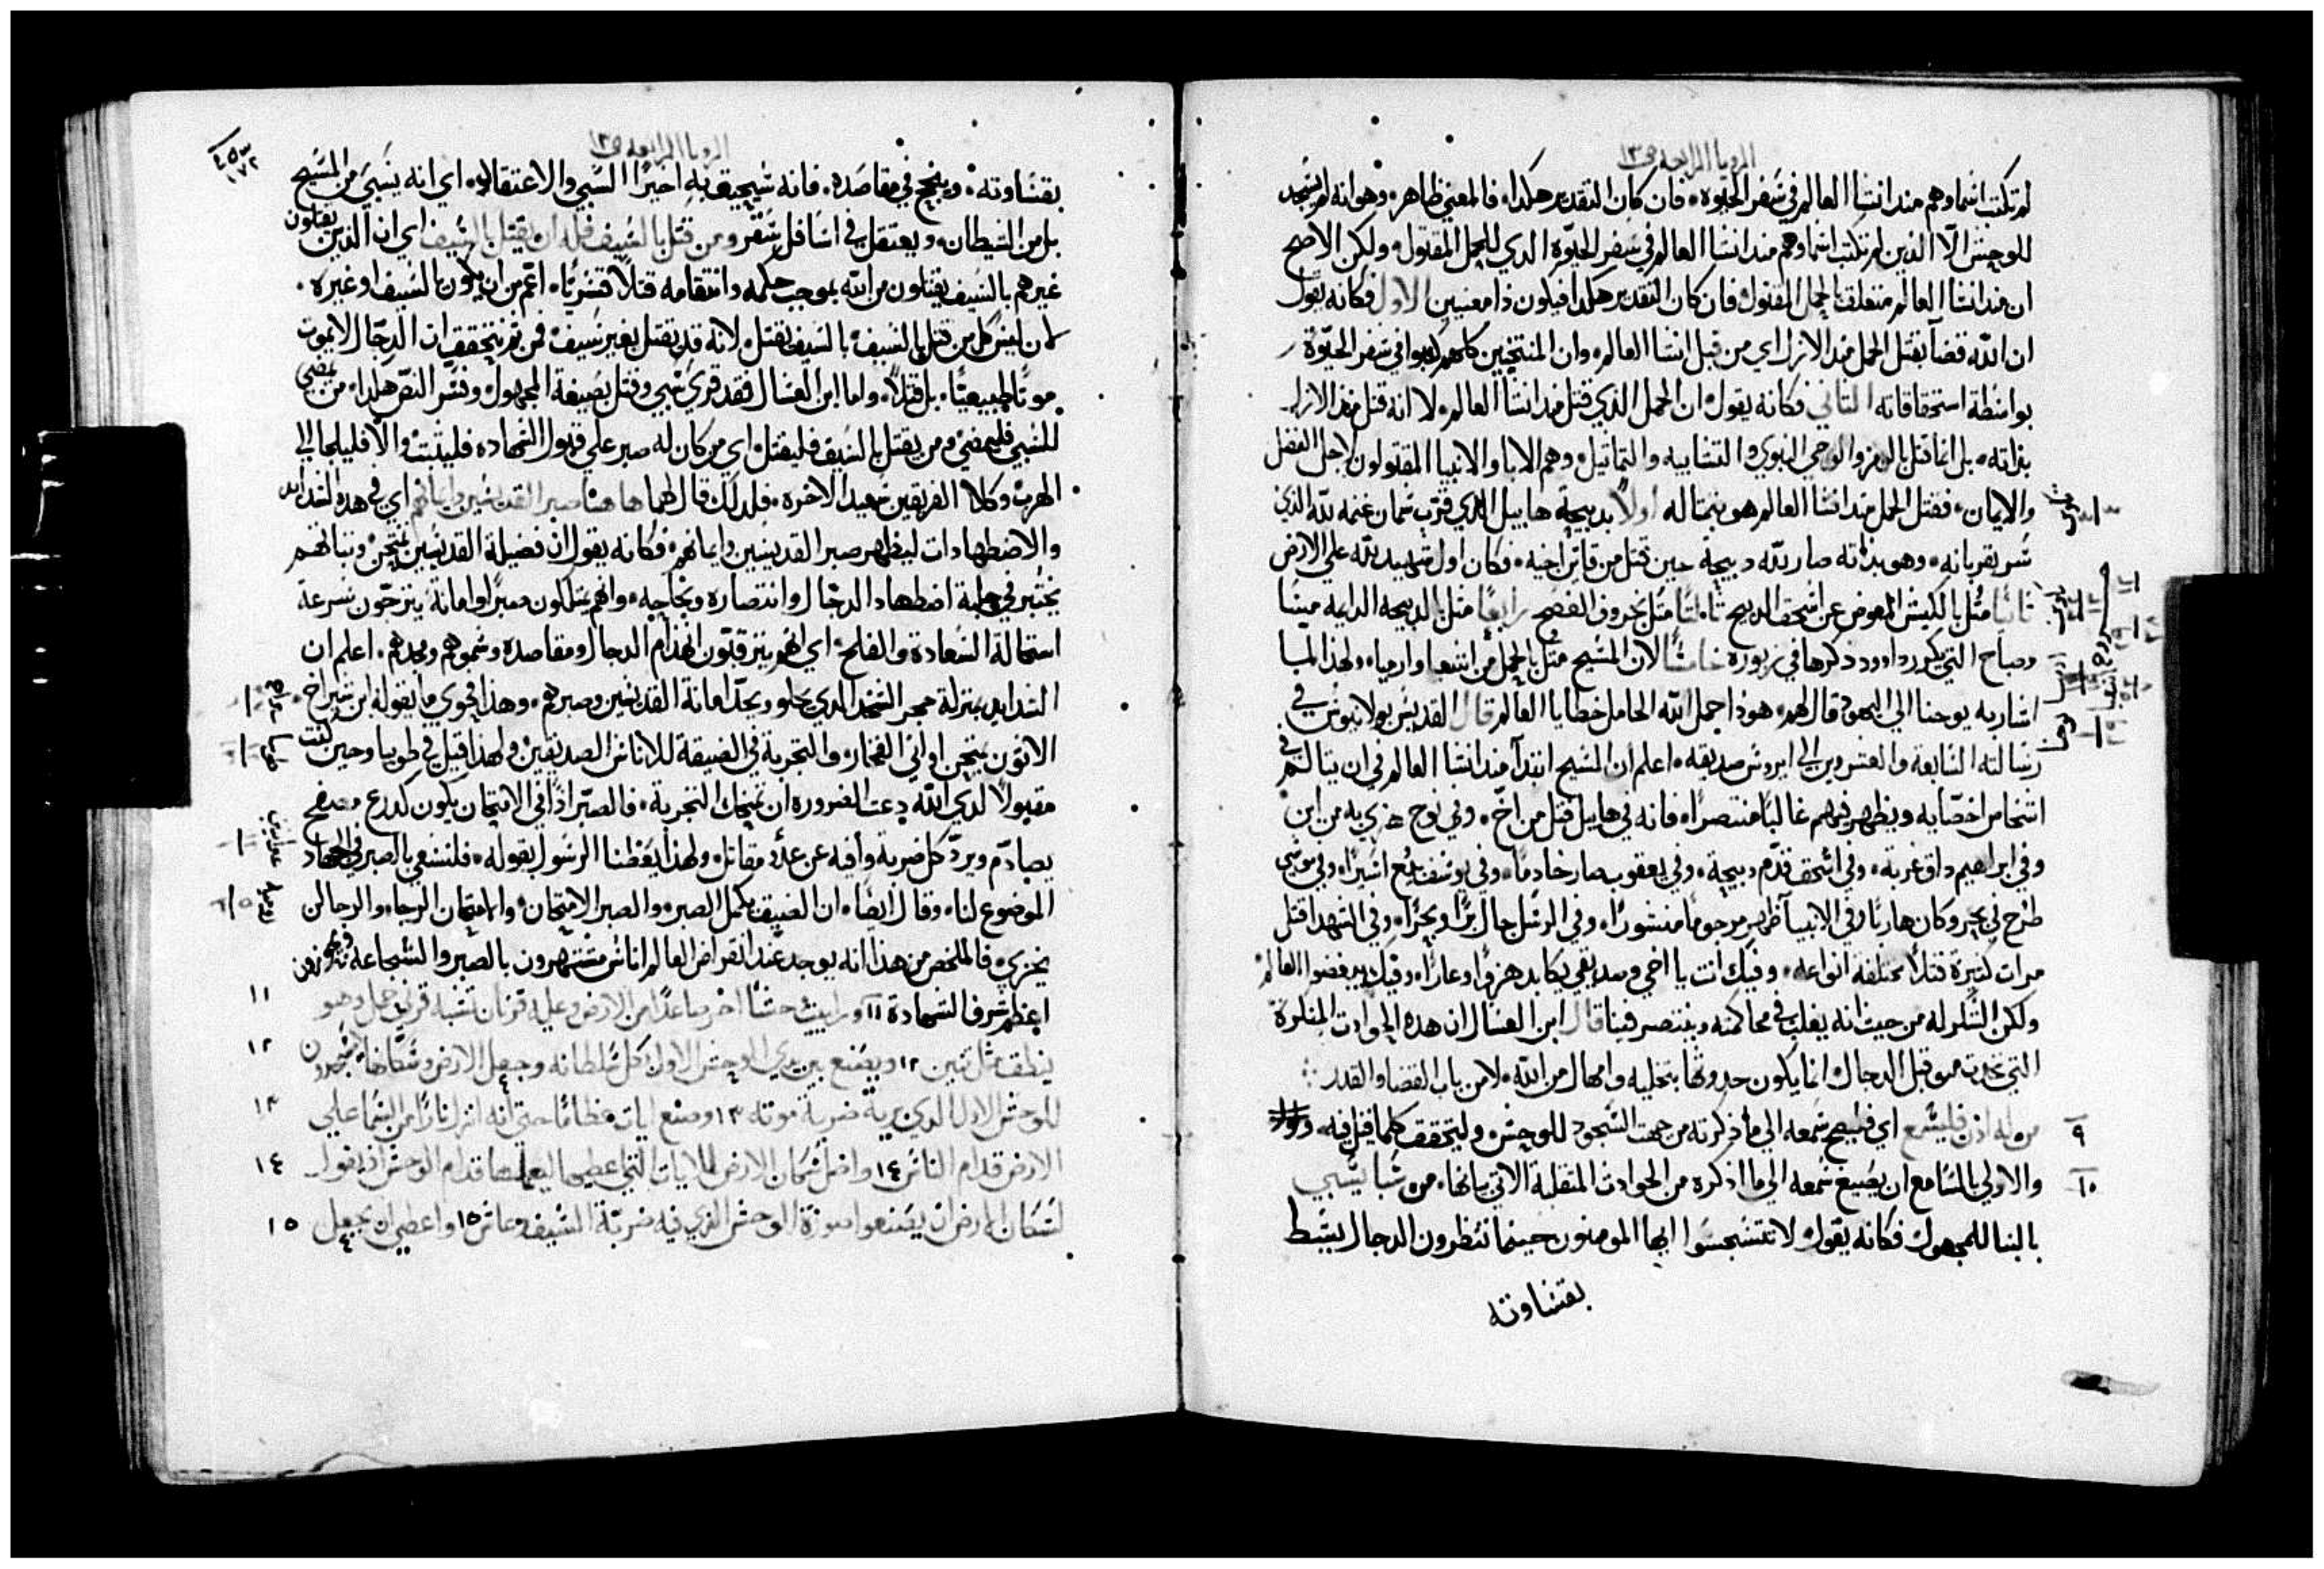 الرويا الرابعه ص١٣
لم تكتب اسماوهم منذ انشا العالم في سفر الحيوه. فان كان التقدير هكدا، فالمعني ظاهر. وهو انه لم يسجد
للوحش الّا الذين لم تكتب اسماوهم منذ انشا العالم في سفر الحيوّة الدي للحمل المقتول. ولكن الاصح
ان منذ انشا العالم متعلق بالحمل المقتول، فان كان التقدير هكدا فيكون ذا معنيين الاول فكانه يقول
ان اللّه قضا بقتل الحمل منذ الازل اي من قبل انشا العالم، وان المنتخبين كلهم كتبوا في سفر الحيوّة
بواسطة استحقاقاته الثاني فكانه يقول، ان الحمل الذي قتل منذ انشا العالم، لا انه قتل منذ الازل
بذاته، بل انما قتل بالرمز والوحي النبوي والتشابيه والتماثيل، وهم الابا والانبيا المقتولون لاجل الفضل
والايمان، فقتل الحمل منذ انشا العالم هو بمثاله اولاً بدبيحة هابيل الذي قرّب سمان غنمه للّه الذي
سر بقربانه، وهو بذاته صار للّه دبيحة حين قتل من قاين اخيه، فكان اول شهيد للّه علي الارض
ثانيًا مثّل بالكبش المعوض عن اسحق الدبيح ثالثًا مثل بخروف الفصح رابعًا مثل بالدبيحه الدايمه ميسًا
وصباح التي يكرر داوود ذكرها في زبوره خامسًا لان المسيح مثّل بالحمل من اشعيا وارميا، ولهذا لما
اشار به يوحنا الي اليهود قال لهم، هوذا حمل اللّه الحامل خطايا العالم قال القديس بولانيوس في
رسالته السابعه والعشرين الي ابروس صديقه، اعلم ان المسيح ابتدا منذ انشا العالم في ان يتالم في
اشخاص اخصّايه ويظهر فيهم غالبًا منتصرًا، فانه في هابيل قتل من اخّ، وفي نوح هزي به من ابن
وفي ابراهيم داق غربة، وفي اسحق قدّم دبيحة، وفي يعقوب صار خادمًا، وفي يوسف بيع اسيرًا، وفي موسي
طرح في بحر وكان هاربًا وفي الانبيا ظهر مرجومًا منشورًا، وفي الرسل جال برًّا وبحرًا، وفي الشهدا قتل
مرات كتيرة قتلاً مختلفه انواعه، وفيك انت يا اخي وصديقي يكابد هزوًا وعارًا، وفيك يبغضوا العالم
ولكن الشكر له من حيث انه يغلب في محاكمته وينتصر فينا قال ابن العسال ان هده الحوادت المنكرة
التي تحدت من قبل الدجال، انما يكون حدوثها بتخليه وامهال من اللّه، لا من باب القضا والقدر
٩ من له اذن فليسمع اي فليصح سمعه الي ما ذكرته من جهت السجود للوحش، وليتحقق كلما قيل فيه،
١٠ والاولي بالسامع ان يصيغ سمعه الي ما اذكره من الحوادث المتقلبة الاتي بيانها، من سبا يسبي
بالبنا للمجهول، فكانه يقول، لا تتسجسوا ايها المومنون حينما تنظرون الدجال يبسط
بقساوته
الرويا الرابعه ص١٣
بقساوته، وينجح في مقاصده، فانه سيحيق به اخيرًا السبي والاعتقال، اي انه يسبي من المسيح
بل من الشيطان، ويعتقل في اسافل سقر ومن قتل بالسيف فله ان يقتل بالسيف اي ان الذين يقتلون
غيرهم بالسيف يقتلون من اللّه بموجب حكمه وانتقامه قتلاً قسريًا، اعّم من ان يكون بالسيف او غيره،
لان ليس كل من قتل بالسيف، بالسيف يقتل، لانه قد يقتل بغير سيف، فمن ثم يتحقق ان الدجّال لا يموت
موتًا طبيعيًا، بل قتلاً، واما ابن العسال فقد قري سبي وقتل بصيغة المجهول، وفسر النص هكدا، من يمضي
للسبي فليمضي، ومن يقتل بالسيف فليقتل، اي من كان له صبر علي قبول الشهاده فليثبت، والاّ فليلجا الي
الهرب، وكلا الفريقين سعيد الاخره، فلدلك قال لهما هاهنا صبر القديسين وايمانهم اي في هده الشدايد
والاضطهادات ليظهر صبر القديسين وايمانهم، فكانه يقول ان فضيلة القديسين تمتحن، وثباتهم
يختبر في حلبة اضطهاد الدجّال وانتصاره ونجاحه، وانهم يتملكون صبرًا وامانة يترجون سرعة
استمالة السعادة والفلح، اي انهم يترقبّون انهدام الدجال ومقاصده وسموهم ومجدهم، اعلم ان
الشدايد بمنزلة حجر الشحد الدي يجلو ويحدّ امانة القديسين وصبرهم، وهذا فحوي ما يقوله ابن شيراخ
الاتون يمتحن اواني الفخّار، والتجربة في الضيقة للاناس الصديقين، ولهذا قيل في طوبيا وحين كنت
مقبولاً لدي اللّه دعت الضروره ان تمتحنك التجربة، فالصبر اذًا في الامتحان يكون كدرع مصفح
يصادم ويردّ كل ضربة وافه عن عدو مقاتل، ولهذا يعّظنا الرسول بقوله، فلنسعي بالصبر في الجهاد
الموضوع لنا، وقال ايضًا، ان الضيق يكمل الصبر، والصبر الامتحان، والامتحان الرجا، والرجا لن
يخزي، فالملخص من هذا انه يوجد عند انقراض العالم اناس مشتهرون بالصبر والشجاعه
١١ اعظم شرف الشهادة ١١ ورايت وحشًا اخر صاعدًا من الارض وعليه قرنان تشبه قرني حمل وهو
١٢ ينطق مثل تنين ١٢ ويصنع بين يدي الوحش الاول كل سلطانه وجعل الارض وسكانها يسجدون
١٣ للوحش الاول الذي بريت ضربة موته ١٣ وصنع ايات عظامًا حتي انه انزل نارًا من السما علي
١٤ الارض قدام الناس ١٤ واضل سكان الارض للايات التي اعطيها ليعملها قدام الوحش اذ يقول
١٥ لسكان الارض ان يصنعوا صورة الوحش الذي فيه ضربة السيف وعاش ١٥ واعطي ان يجعل